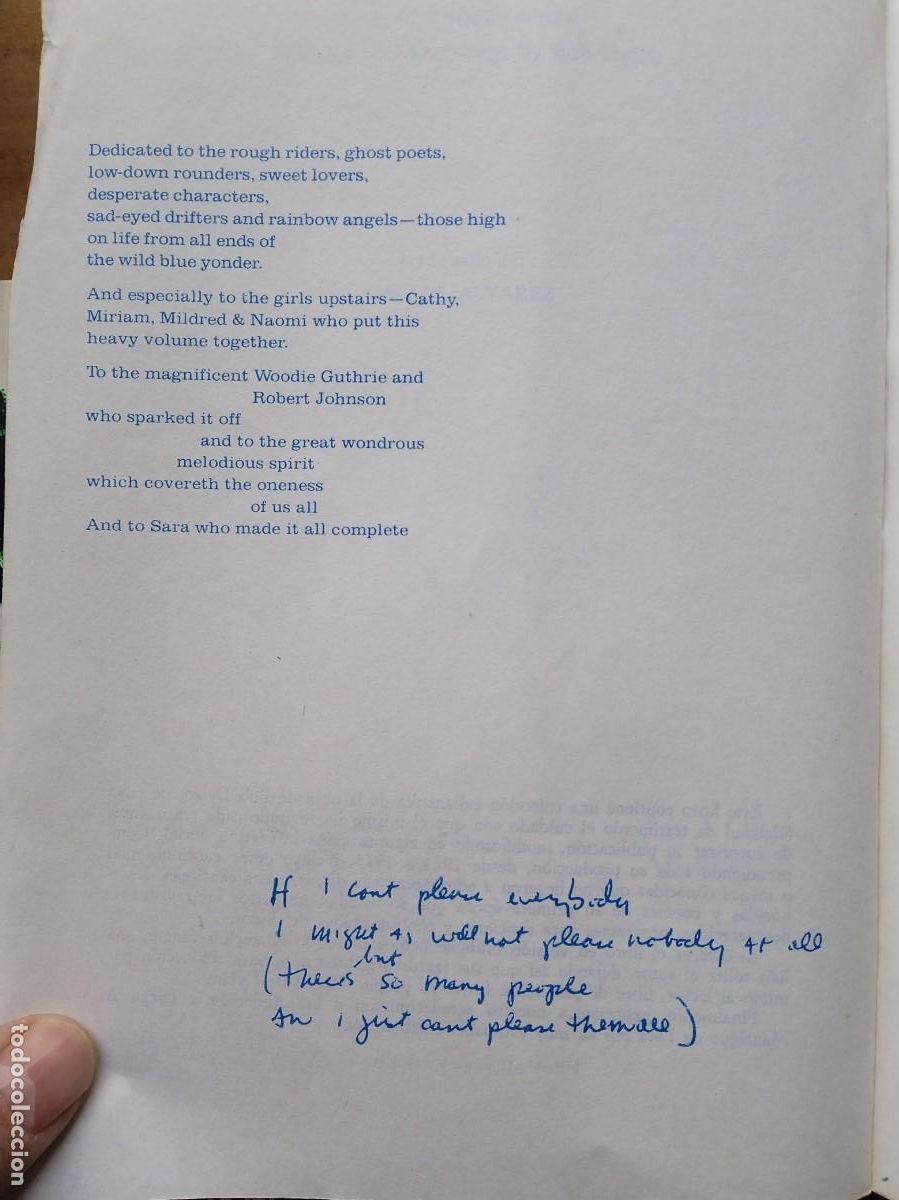 Dedicated to the rough riders, ghost poets,
low-down rounders, sweet lovers,
desperate characters,
sad-eyed drifters and rainbow angels—those high
on life from all ends of
the wild blue yonder.
And especially to the girls upstairs—Cathy,
Miriam, Mildred & Naomi who put this
heavy volume together.
To the magnificent Woodie Guthrie and
Robert Johnson
who sparked it off
and to the great wondrous
melodious spirit
which covereth the oneness
of us all
And to Sara who made it all complete
If I cant please everybody
I might as well not please nobody at all
but
(theres so many people
An i just cant please them all)
todocoleccion